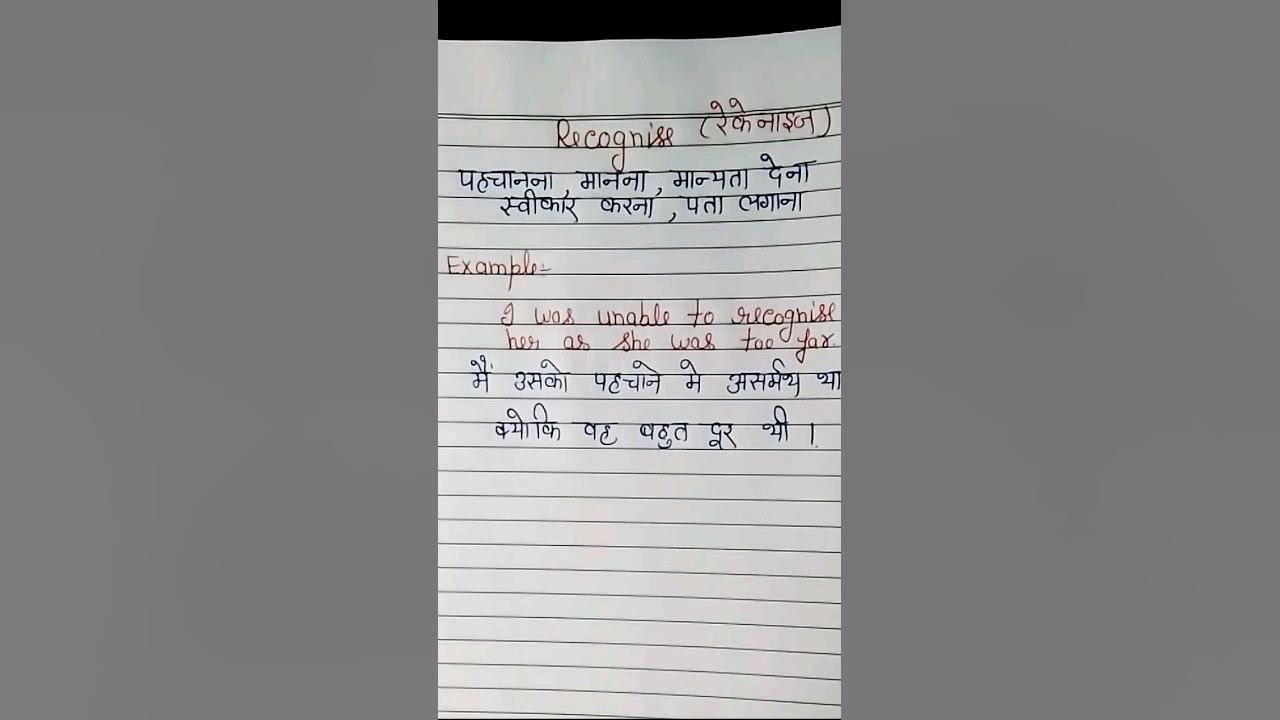 Recognise (रेकेनाइज)
पहचानना, मानना, मान्यता देना
स्वीकार करना, पता लगाना
Example:-
I was unable to recognise
her as she was too far.
मैं उसको पहचाने मे असर्मथ था
क्योकि वह बहुत दूर थी ।